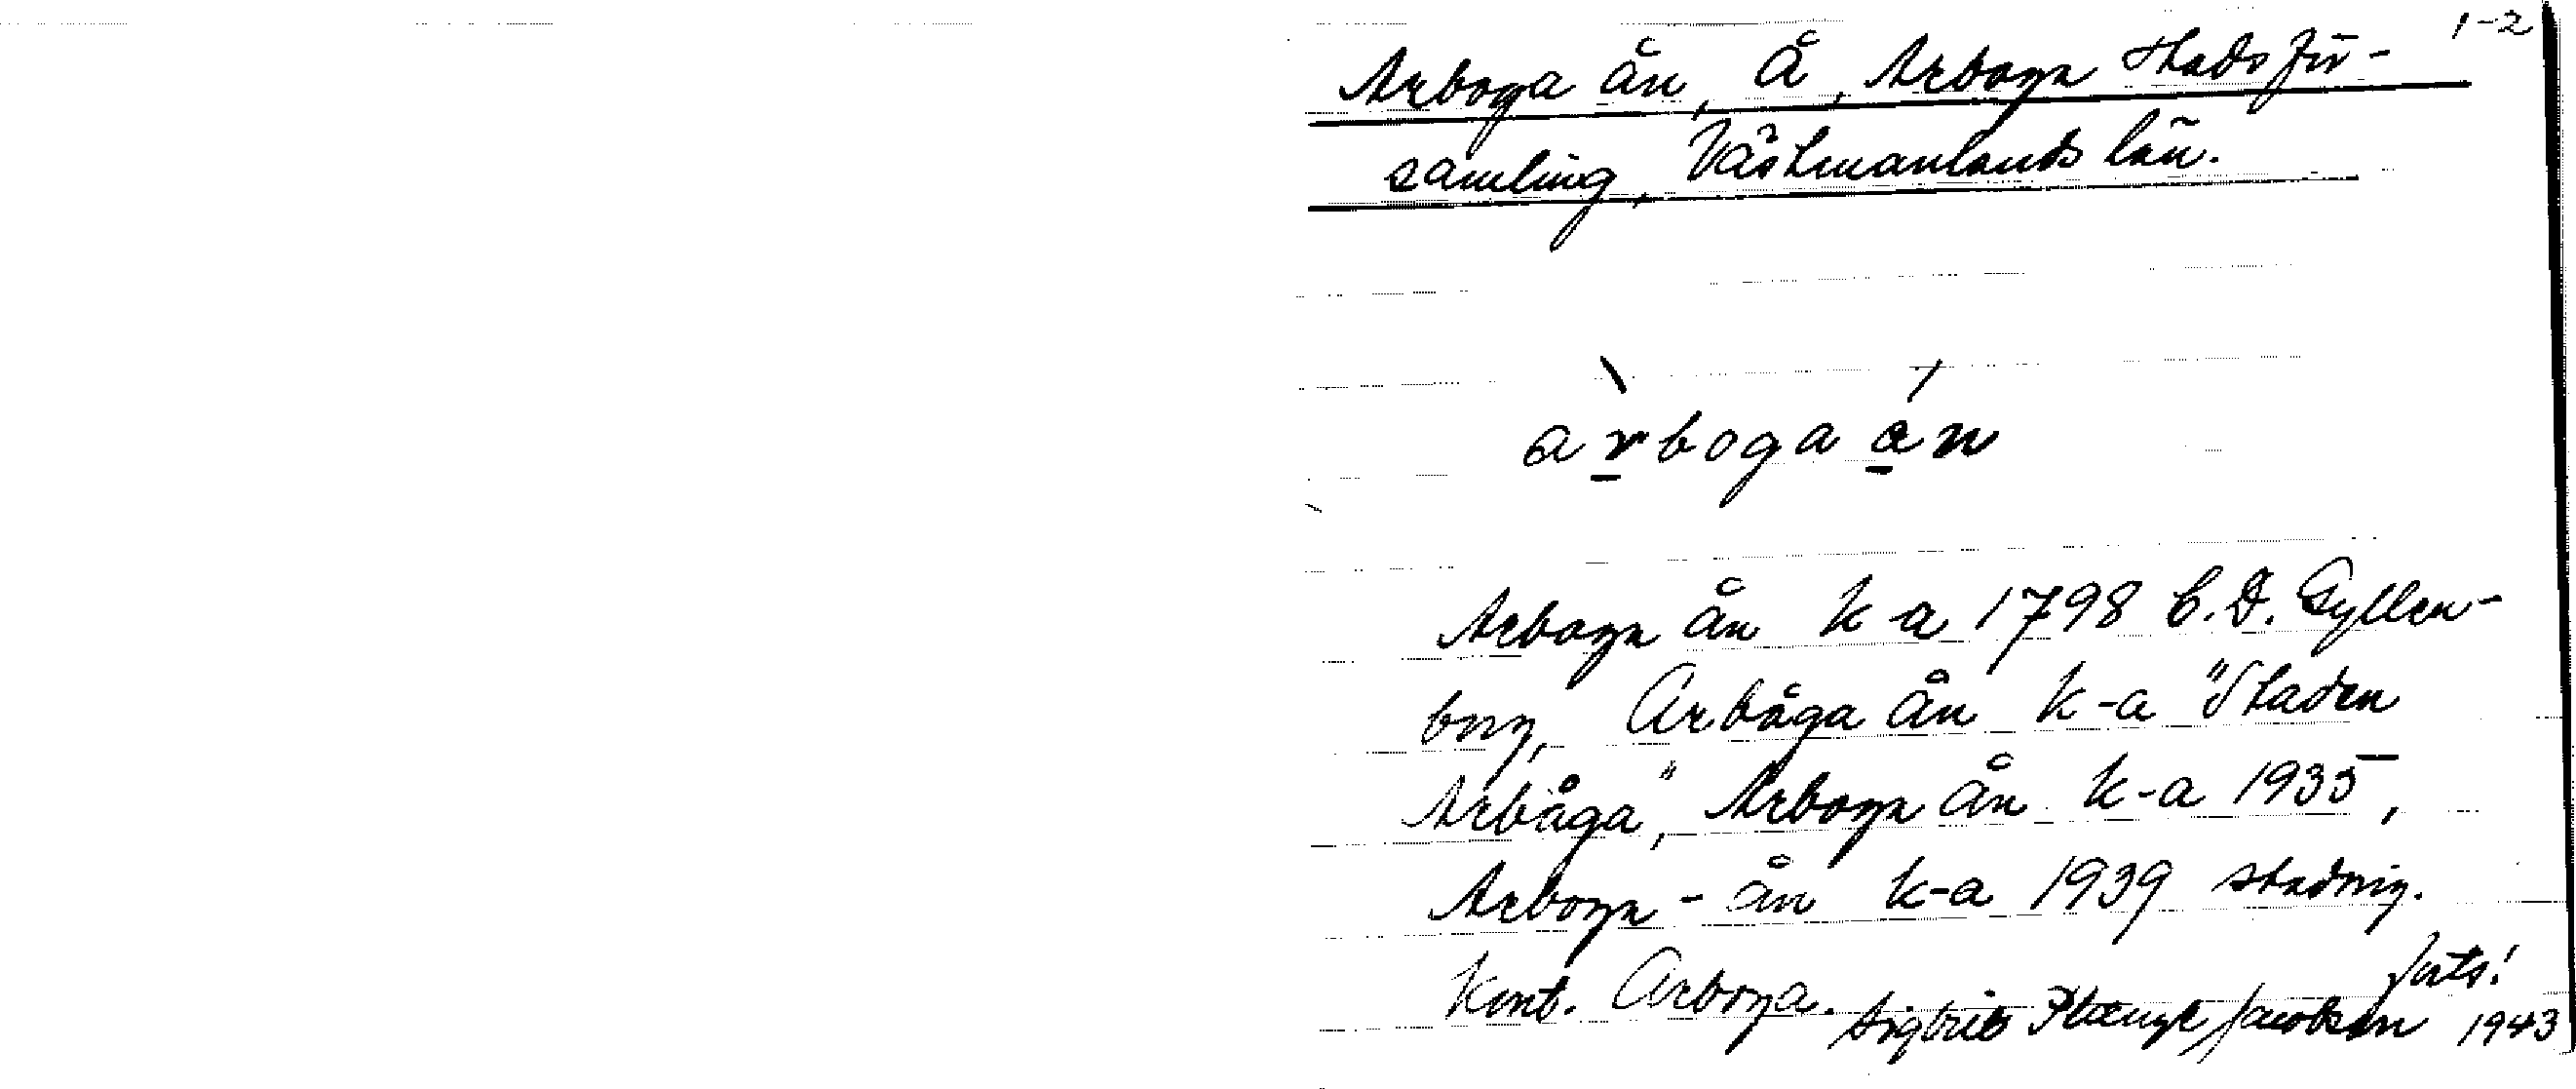 1-2
Arboga ån, Å, Arboga stadsför-
samling, Västmanlands län.
arbogaån
Arboga ån k-a 1798 C.D. Gyllen-
borg, Arbåga ån k-a "Staden
Arbåga", Arboga ån k-a 1935,
Arboga-ån k-a 1939 stadsing.
Kont. Arboga.
forts!
Sigbrit Plænge Jacobson 1943